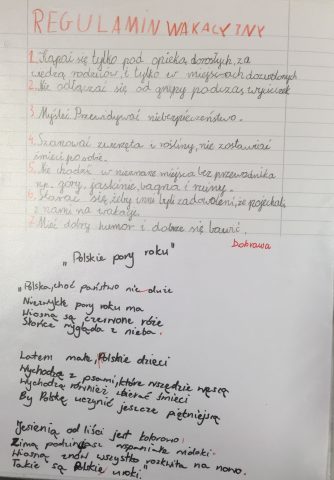 REGULAMIN WAKACYJNY
1. Kąpać się tylko pod opieką dorosłych, za
wiedzą rodziców, i tylko w miejscach dozwolonych.
2. Nie odłączać się od grupy podczas wycieczek
3. Myśleć. Przewidywać niebezpieczeństwo.
4. Szanować zwierzęta i rośliny, nie zostawiać
śmieci po sobie.
5. Nie chodzić w nieznane miejsca bez przewodnika
np. góry, jaskinie, bagna i ruiny.
6. Starać się, żeby inni byli zadowoleni, że pojechali
z nami na wakacje.
7. Mieć dobry humor i dobrze się bawić.
Dobrawa
„Polskie pory roku"
„Polska, choć państwo nieduże
Niezwykłe pory roku ma
Wiosną są czerwone róże
Słońce wygląda z nieba.
Latem małe, Polskie dzieci
Wychodzą z psami, które wszędzie węszą
Wychodzą również zbierać śmieci
By Polskę uczynić jeszcze piękniejszą
Jesienią od liści jest kolorowo,
Zimą podziwiasz wspaniałe widoki.
Wiosną znów wszystko rozkwita na nowo.
Takie są Polskie uroki.